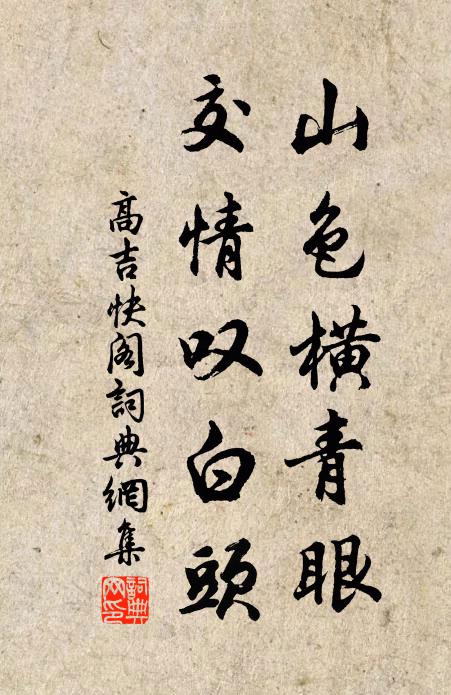 山色橫青眼
交情叹白頭
高吉快阁詞典網集
詞典网印